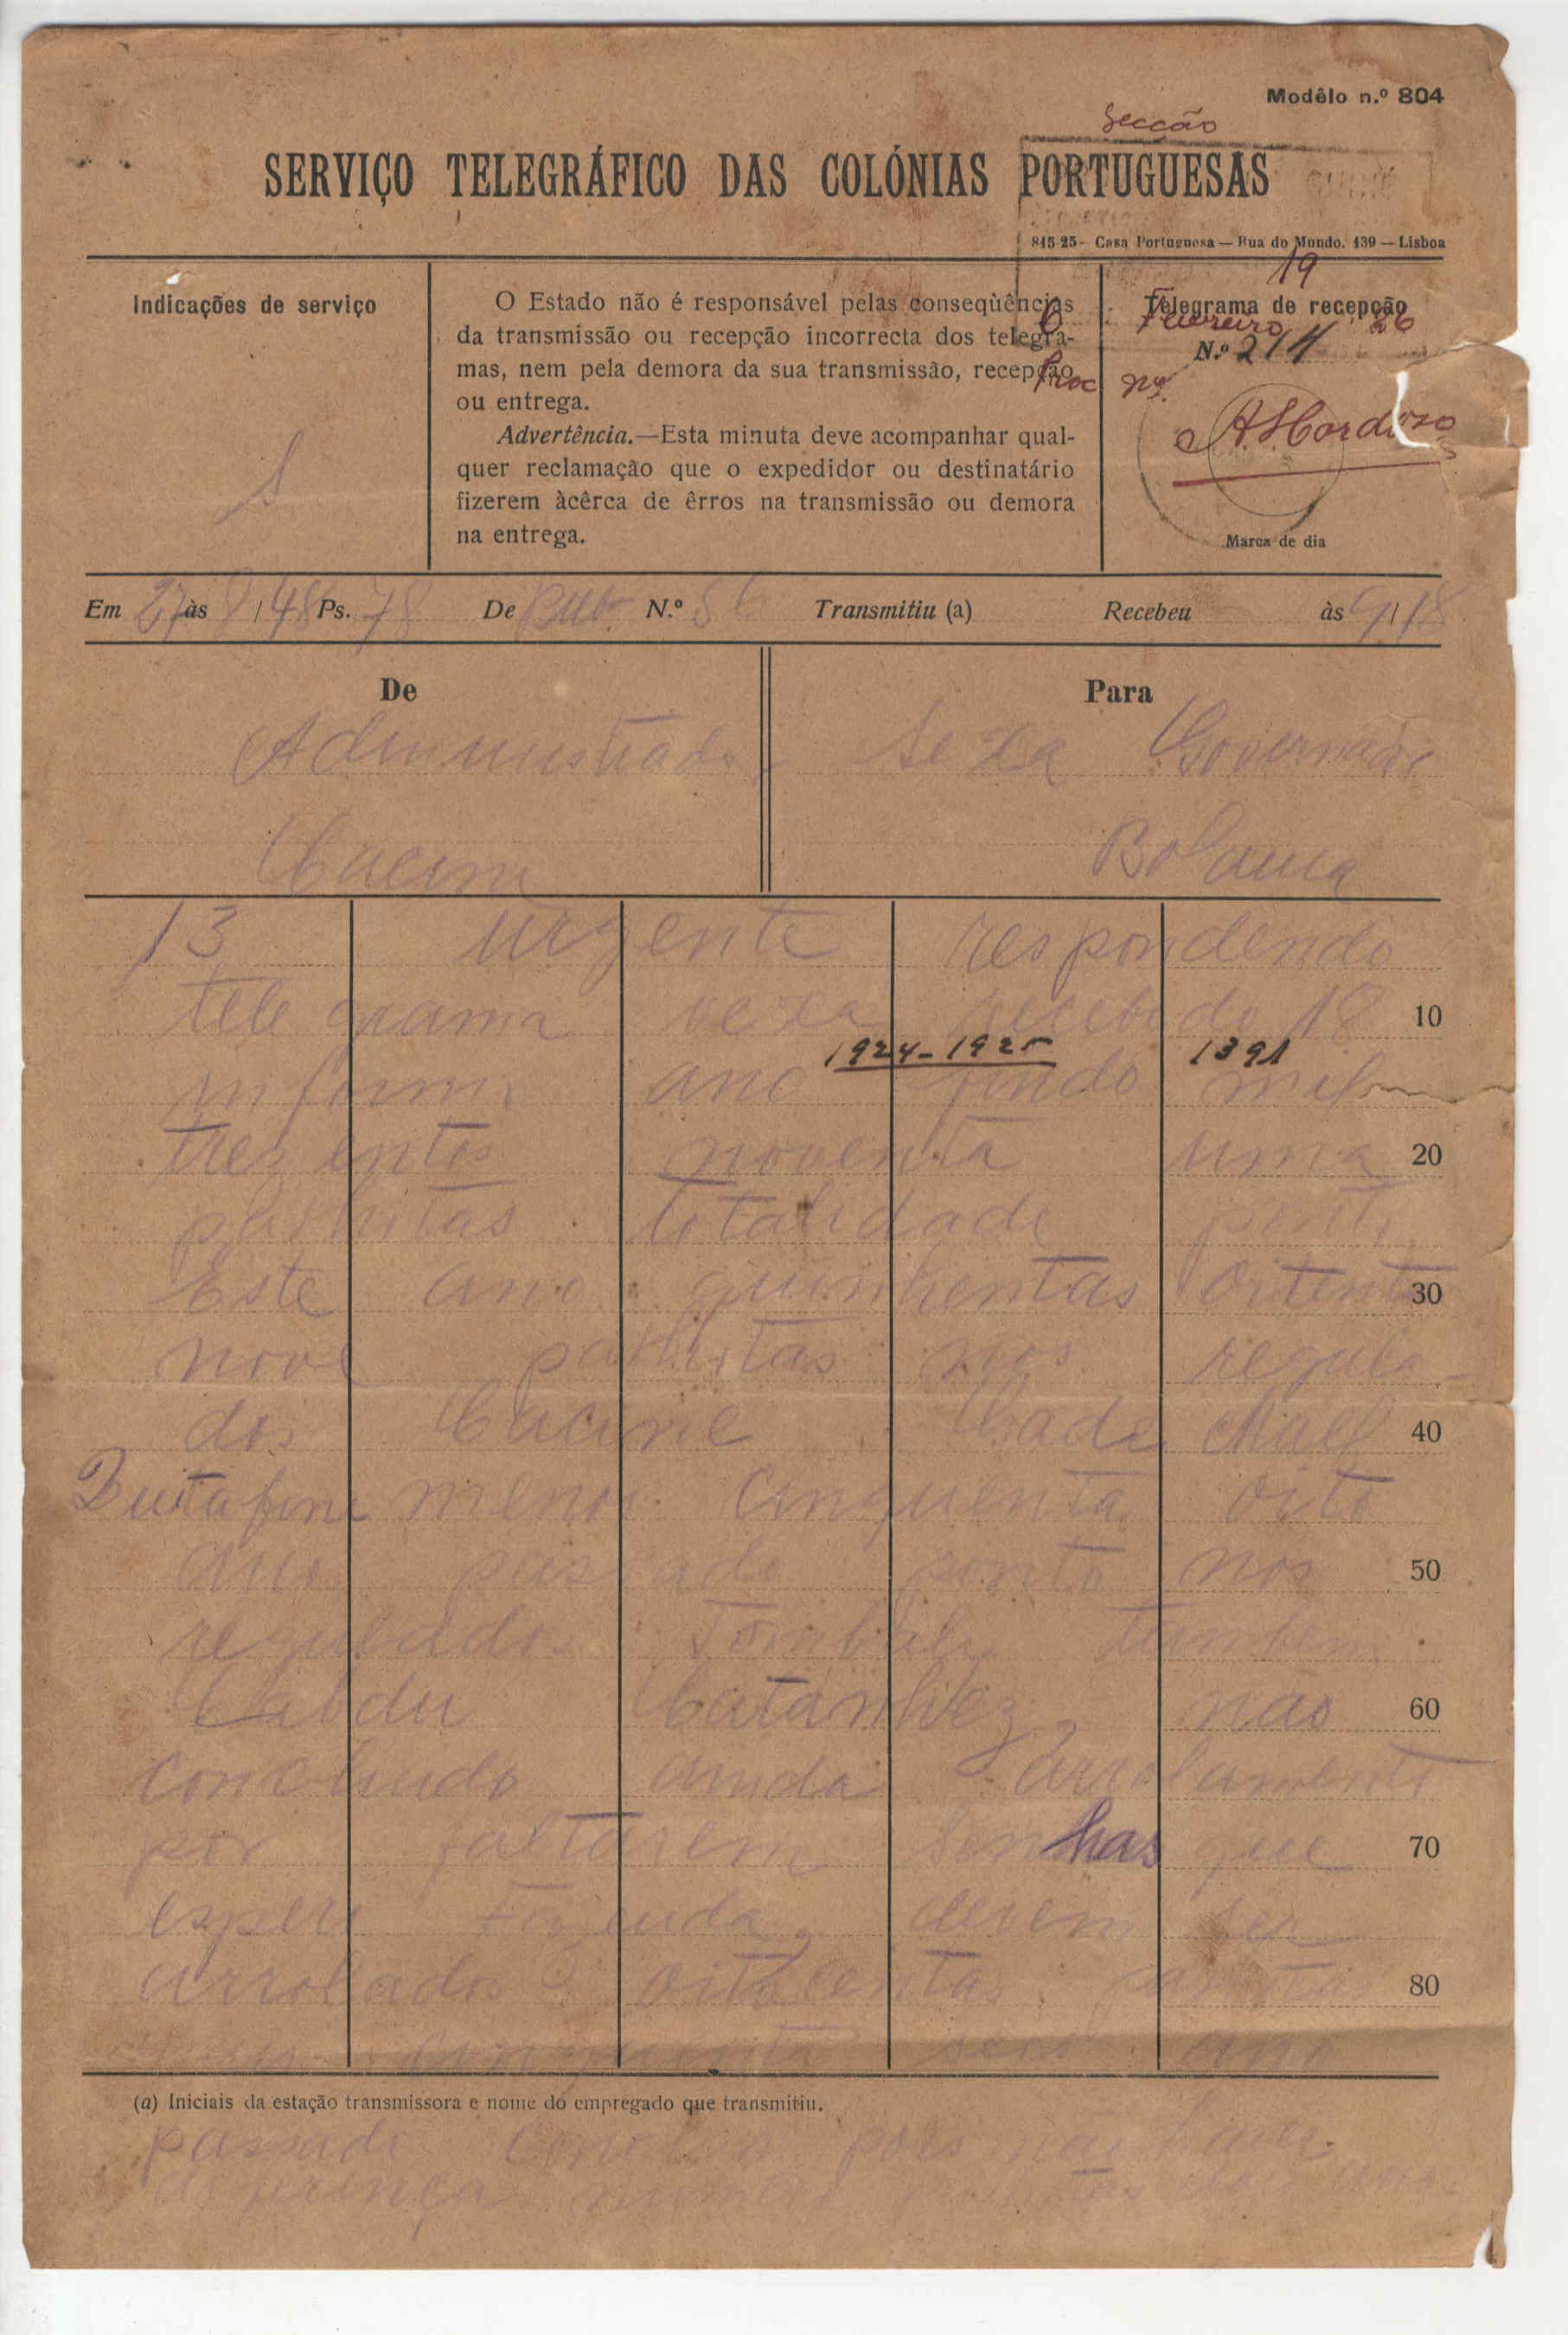 Modêlo n.º 804
Secção
SERVIÇO TELEGRÁFICO DAS COLÓNIAS PORTUGUESAS
815-25 - Casa Portuguesa — Rua do Mundo, 139 — Lisboa
Indicações de serviço
S
O Estado não é responsável pelas conseqùências
da transmissão ou recepção incorrecta dos telegra-
mas, nem pela demora da sua transmissão, recepção
ou entrega.
Advertência.—Esta minuta deve acompanhar qual-
quer reclamação que o expedidor ou destinatário
fizerem àcêrca de êrros na transmissão ou demora
na entrega.
19
Telegrama de recepção
Fevereiro 26
N.º 211
Proc nº
Cardoso
Marca de dia
Em 27 às 8/48 Ps. 78 De N.º 56 Transmitiu (a) Recebeu às 9/18
De
Para
Administrador
Governador
Cacine
Bolama
13 urgente respondendo
telegrama recebido 18 10
1924-1925 1391
informo ano findo mil
trezentos noventa uma 20
palhotas totalidade ponto
Este ano quinhentas oitenta 30
nove palhotas nos regula-
dos Cacine Cade Mael 40
menos cinquenta oito
ano passado ponto nos 50
regulados Tombali tambem
Cabdu Catanhez não 60
concluido ainda arrolamento
por faltarem senhas que 70
espero Fazenda devem ser
arrolados oitocentas palhotas 80
cinquenta seis ano
(a) Iniciais da estação transmissora e nome do empregado que transmitiu.
passado pois não haver
diferença numero palhotas